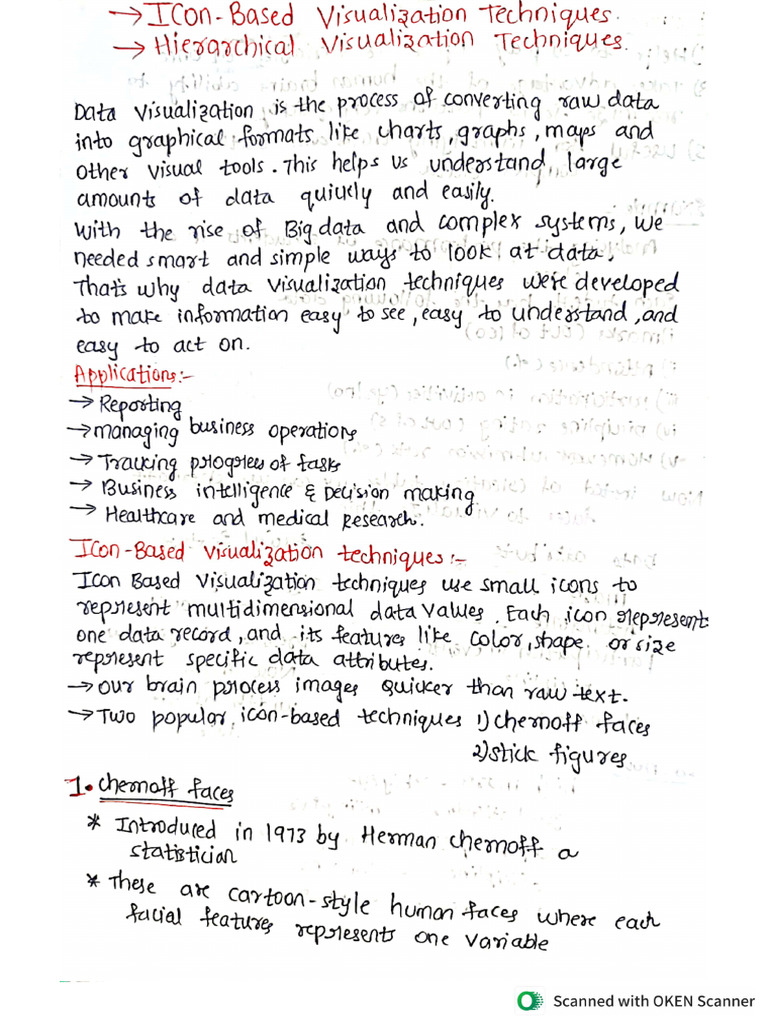 → Icon-Based Visualization Techniques.
→ Hierarchical Visualization Techniques.
Data Visualization is the process of converting raw data
into graphical formats like charts, graphs, maps and
other visual tools. This helps us understand large
amounts of data quickly and easily.
With the rise of Big data and complex systems, we
needed smart and simple ways to look at data,
That's why data visualization techniques were developed
to make information easy to see, easy to understand, and
easy to act on.
Applications:-
→ Reporting
→ managing business operations
→ Tracking progress of tasks
→ Business intelligence & Decision making
→ Healthcare and medical Research.
Icon-Based Visualization techniques:-
Icon Based Visualization techniques use small icons to
represent multidimensional data values. Each icon represent
one data record, and its features like color, shape or size
represent specific data attributes.
→ our brain process images quicker than raw text.
→ Two popular icon-based techniques 1) chernoff faces
2) stick figures
1. chernoff faces
* Introduced in 1973 by Herman chernoff a
statistician
* These are cartoon-style human faces where each
facial features represents one variable
Scanned with OKEN Scanner